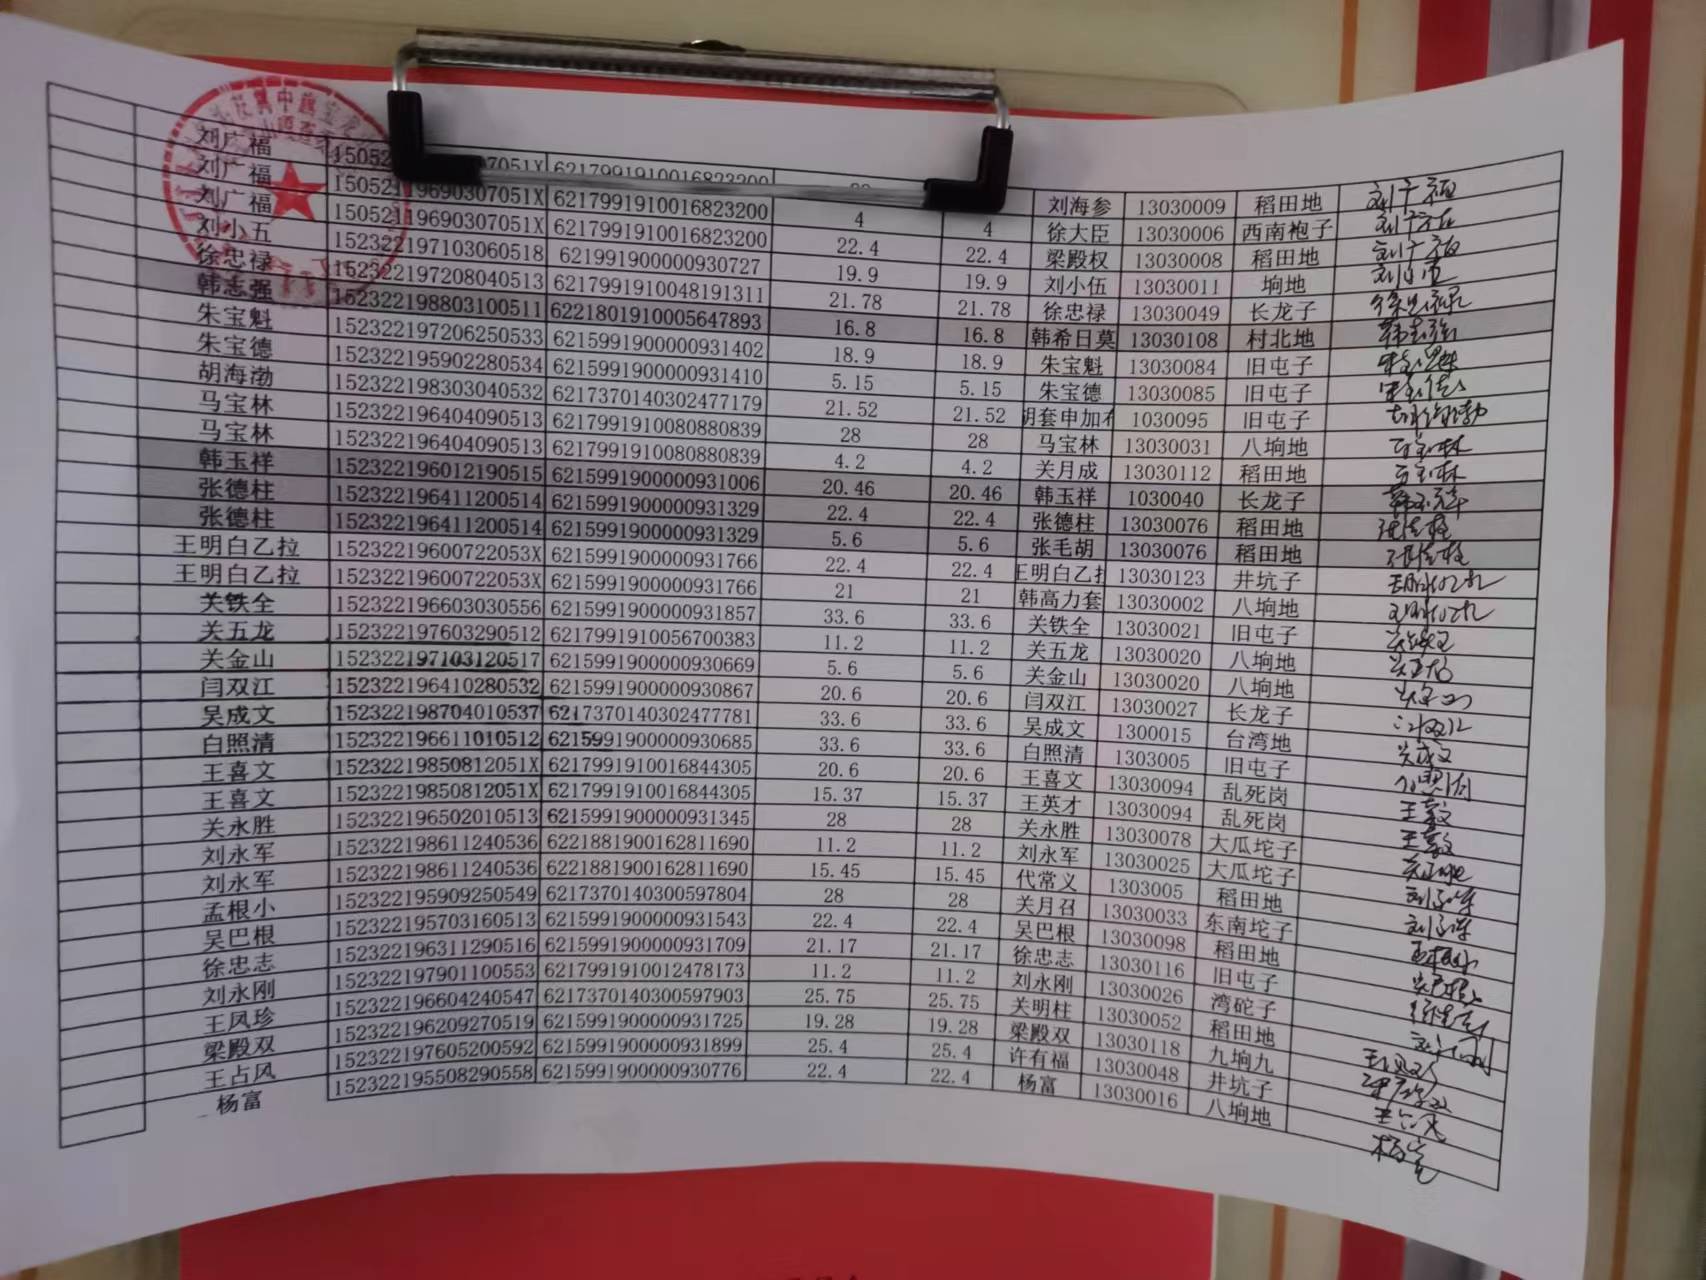 刘广福 6217991910016823200 刘海参 13030009 稻田地 刘广福
刘广福 15052119690307051X 6217991910016823200 4 4 徐大臣 13030006 西南袍子 刘广福
刘广福 15052119690307051X 6217991910016823200 22.4 22.4 梁殿权 13030008 稻田地 刘广福
刘小五 152322197103060518 6219919000000930727 19.9 19.9 刘小伍 13030011 垧地 刘小五
徐忠禄 152322197208040513 6217991910048191311 21.78 21.78 徐忠禄 13030049 长龙子 徐忠禄
韩志强 152322198803100511 6221801910005647893 16.8 16.8 韩希日莫 13030108 村北地 韩志强
朱宝魁 152322197206250533 6215991900000931402 18.9 18.9 朱宝魁 13030084 旧屯子 朱宝魁
朱宝德 152322195902280534 6215991900000931410 5.15 5.15 朱宝德 13030085 旧屯子 朱宝德
胡海渤 152322198303040532 6217370140302477179 21.52 21.52 胡套申加布 1030095 旧屯子 胡海渤
马宝林 152322196404090513 6217991910080880839 28 28 马宝林 13030031 八垧地 马宝林
马宝林 152322196404090513 6217991910080880839 4.2 4.2 关月成 13030112 稻田地 马宝林
韩玉祥 152322196012190515 6215991900000931006 20.46 20.46 韩玉祥 1030040 长龙子 韩玉祥
张德柱 152322196411200514 6215991900000931329 22.4 22.4 张德柱 13030076 稻田地 张德柱
张德柱 152322196411200514 6215991900000931329 5.6 5.6 张毛胡 13030076 稻田地 张德柱
王明白乙拉 15232219600722053X 6215991900000931766 22.4 22.4 王明白乙拉 13030123 井坑子 王明白乙拉
王明白乙拉 15232219600722053X 6215991900000931766 21 21 韩高力套 13030002 八垧地 王明白乙拉
关铁全 152322196603030556 6215991900000931857 33.6 33.6 关铁全 13030021 旧屯子 关铁全
关五龙 152322197603290512 6217991910056700383 11.2 11.2 关五龙 13030020 八垧地 关五龙
关金山 152322197103120517 6215991900000930669 5.6 5.6 关金山 13030020 八垧地 关金山
闫双江 152322196410280532 6215991900000930867 20.6 20.6 闫双江 13030027 长龙子 闫双江
吴成文 152322198704010537 6217370140302477781 33.6 33.6 吴成文 1300015 台湾地 吴成文
白照清 152322196611010512 6215991900000930685 33.6 33.6 白照清 1303005 旧屯子 白照清
王喜文 15232219850812051X 6217991910016844305 20.6 20.6 王喜文 13030094 乱死岗 王喜文
王喜文 15232219850812051X 6217991910016844305 15.37 15.37 王英才 13030094 乱死岗 王喜文
关永胜 152322196502010513 6215991900000931345 28 28 关永胜 13030078 大瓜坨子 关永胜
刘永军 152322198611240536 6221881900162811690 11.2 11.2 刘永军 13030025 大瓜坨子 刘永军
刘永军 152322198611240536 6221881900162811690 15.45 15.45 代常义 1303005 稻田地 刘永军
孟根小 152322195909250549 6217370140300597804 28 28 关月召 13030033 东南坨子 孟根小
吴巴根 152322195703160513 6215991900000931543 22.4 22.4 吴巴根 13030098 稻田地 吴巴根
徐忠志 152322196311290516 6215991900000931709 21.17 21.17 徐忠志 13030116 旧屯子 徐忠志
刘永刚 152322197901100553 6217991910012478173 11.2 11.2 刘永刚 13030026 湾砣子 刘永刚
王凤珍 152322196604240547 6217370140300597903 25.75 25.75 关明柱 13030052 稻田地
梁殿双 152322196209270519 6215991900000931725 19.28 19.28 梁殿双 13030118 九垧九 梁殿双
王占风 152322197605200592 6215991900000931899 25.4 25.4 许有福 13030048 井坑子 王占风
杨富 152322195508290558 6215991900000930776 22.4 22.4 杨富 13030016 八垧地 杨富